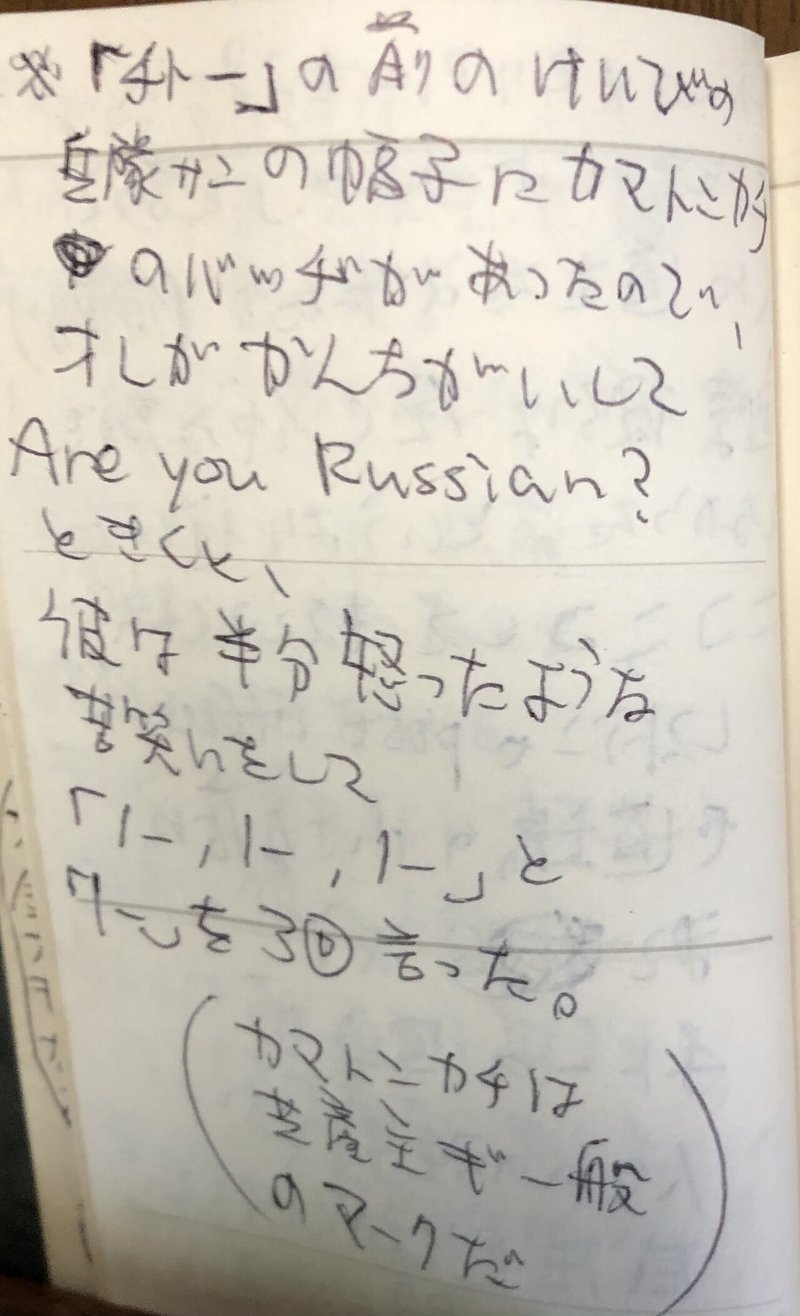 ※「チトー」の前のけいびの
兵隊サンの帽子にカマトンカチ
のバッヂがあったので、
オレがかんちがいして
Are you Russian?
ときくと、
彼は半分怒ったような
苦笑いをして
「ノー，ノー，ノー」と
「ノー」を3回言った。
（カマトンカチは
共産主ギ一般
のマークだ）